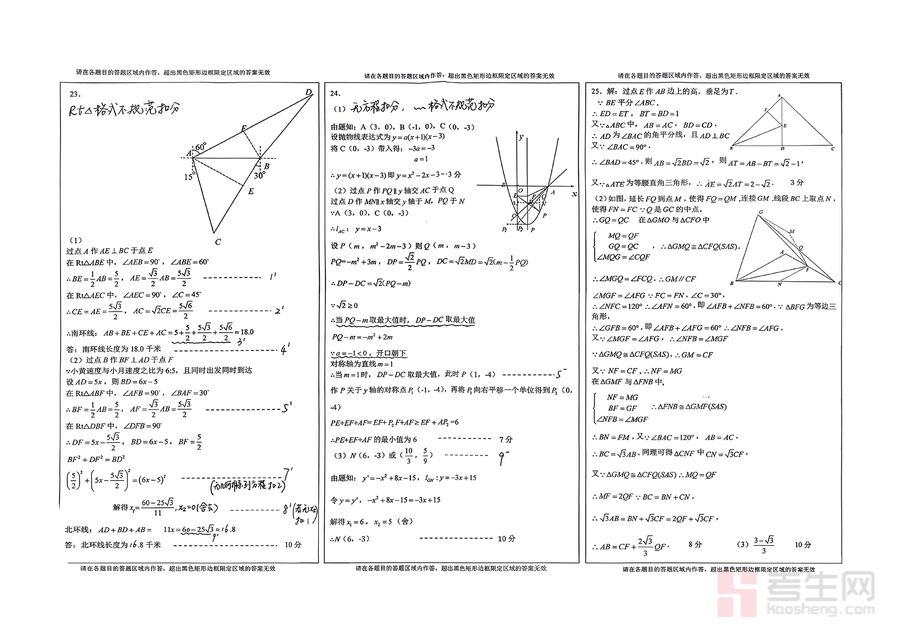 请在各题目的答题区域内作答，超出黑色矩形边框限定区域的答案无效
23．
Rt△格式不规范扣分
D
F
A
60°
B
15°
30°
E
C
（1）
过点 A 作 AE⊥BC 于点 E
在 Rt△ABE 中，∠AEB=90°，∠ABE=60°
∴BE=1/2AB=5/2，AE=√3/2AB=5√3/2 1'
在 Rt△AEC 中，∠AEC=90°，∠C=45°
∴CE=AE=5√3/2，AC=√2CE=5√6/2 2'
∴南环线：AB+BE+CE+AC=5+5/2+5√3/2+5√6/2≈18.0 3'
答：南环线长度为 18.0 千米 4'
（2）过点 B 作 BF⊥AD 于点 F
∵小黄速度与小月速度之比为 6:5，且同时出发同时到达
设 AD=5x，则 BD=6x−5
在 Rt△ABF 中，∠AFB=90°，∠BAF=30°
∴BF=1/2AB=5/2，AF=√3/2AB=5√3/2 5'
在 Rt△DBF 中，∠DFB=90°
∴DF=5x−5√3/2，BD=6x−5，BF=5/2
BF²+DF²=BD²
(5/2)²+(5x−5√3/2)²=(6x−5)² 7'
解得 x₁=(60−25√3)/11，x₂=0(舍去) 8'
北环线：AD+BD+AB= 11x=60−25√3≈16.8
9'
答：北环线长度为 16.8 千米 10 分
请在各题目的答题区域内作答，超出黑色矩形边框限定区域的答案无效
请在各题目的答题区域内作答，超出黑色矩形边框限定区域的答案无效
24．
（1）无方程扣分，格式不规范扣分
由题知：A（3，0），B（-1，0），C（0，-3）
设抛物线表达式为 y=a(x+1)(x−3)
将 C（0，-3）带入得：−3a=−3
a=1
∴y=(x+1)(x−3) 即 y=x²−2x−3 3 分
（2）过点 P 作 PQ∥y 轴交 AC 于点 Q
过点 D 作 MN∥x 轴交 y 轴于 M，PQ 于 N
∵A（3，0），C（0，-3）
∴l_AC：y=x−3
设 P（m，m²−2m−3）则 Q（m，m−3）
PQ=−m²+3m，DP=√2/2PQ，DC=√2MD=√2(m−1/2PQ)
∴DP−DC=√2(PQ−m)
∵√2≥0
∴当 PQ−m 取最大值时，DP−DC 取最大值
PQ−m=−m²+2m
∵a=−1<0，开口朝下
对称轴为直线 m=1
∴当 m=1 时，DP−DC 取最大值，此时 P（1，-4） 5'
作 P 关于 y 轴的对称点 P₁（-1，-4），再将 P₁ 向右平移一个单位得到 P₂（0，
-4）
PE+EF+AF=EF+P₂F+AF≥EF+AP₂=6
∴PE+EF+AF 的最小值为 6 7 分
（3）N（6，-3）或（10/3，5/9） 9'
由题知：y'=−x²+8x−15，l_GN：y=−3x+15
令 y=y'，−x²+8x−15=−3x+15
解得 x₁=6，x₂=5（舍）
∴N（6，-3） 10 分
请在各题目的答题区域内作答，超出黑色矩形边框限定区域的答案无效
请在各题目的答题区域内作答，超出黑色矩形边框限定区域的答案无效
25．解：过点 E 作 AB 边上的高，垂足为 T．
∵BE 平分∠ABC，
∴ED=ET，BT=BD=1
又∵△ABC 中，AB=AC，BD=CD，
∴AD 为∠BAC 的角平分线，且 AD⊥BC
又∵∠BAC=90°，
∴∠BAD=45°，则 AB=√2BD=√2，则 AT=AB−BT=√2−1，
又∵△ATE 为等腰直角三角形，∴AE=√2AT=2−√2． 3 分
（2）如图，延长 FQ 到点 M，使得 FQ=QM，连接 GM，线段 BC 上取点 N，
使得 FN=FC∵Q 是 GC 的中点，
∴GQ=QC 在△GMQ 与△CFQ 中
MQ=QF
GQ=QC ，∴△GMQ≅△CFQ(SAS)，
∠MQG=∠CQF
∴∠MGQ=∠FCQ，∴GM∥CF
∠MGF=∠AFG∵FC=FN，∠C=30°，
∴∠NFC=120°∴∠AFN=60°，即∠AFB+∠NFB=60°，∵△BFG 为等边三
角形，
∴∠GFB=60°，即∠AFB+∠AFG=60°∴∠NFB=∠AFG，
又∵∠MGF=∠AFG，∴∠NFB=∠MGF
∵△GMQ≅△CFQ(SAS)，∴GM=CF
又∵NF=CF，∴NF=MG
在△GMF 与△FNB 中，
NF=MG
BF=GF ∴△FNB≅△GMF(SAS)
∠NFB=∠MGF
∴BN=FM，又∵∠BAC=120°，AB=AC，
∴BC=√3AB，同理可得△CNF 中 CN=√3CF，
又∵△GMQ≅△CFQ(SAS)∴MQ=QF
∴MF=2QF∵BC=BN+CN，
∴√3AB=BN+√3CF=2QF+√3CF，
∴AB=CF+2√3/3QF． 8 分 （3）(3−√3)/3 10 分
请在各题目的答题区域内作答，超出黑色矩形边框限定区域的答案无效
考生网
kaosheng.com